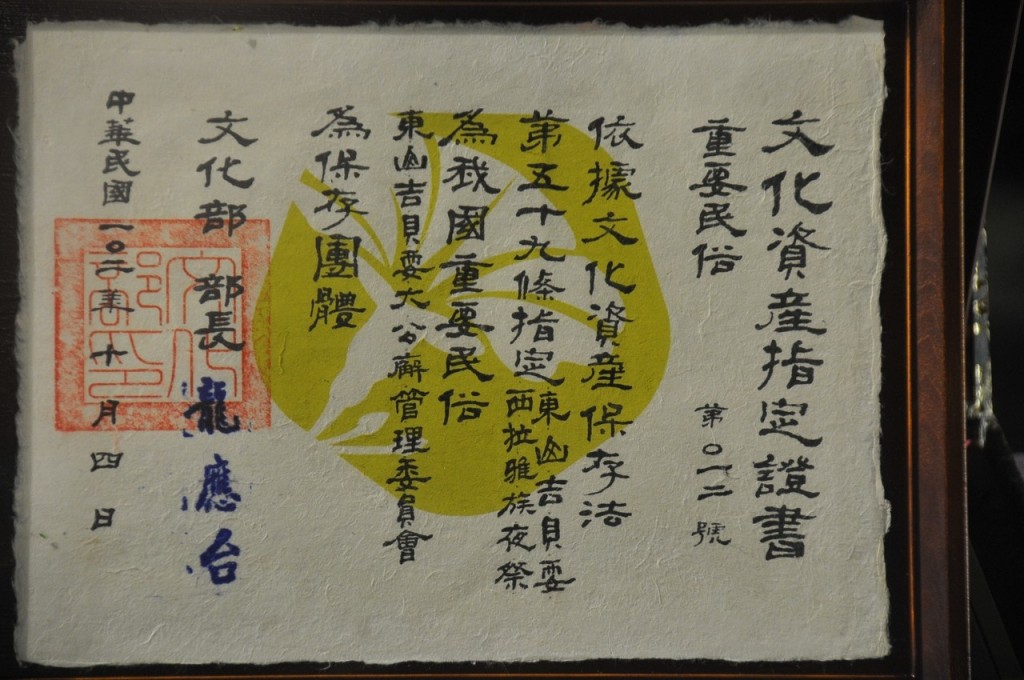 文化資産指定證書
重要民俗
第〇一二號
依據文化資産保存法
第五十九條指定東山吉貝耍
西拉雅族夜祭
為我國重要民俗
東山吉貝耍大公廨管理委員會
為保存團體
文化部 部長 龍應台
中華民國一〇二年十月四日
文化部印